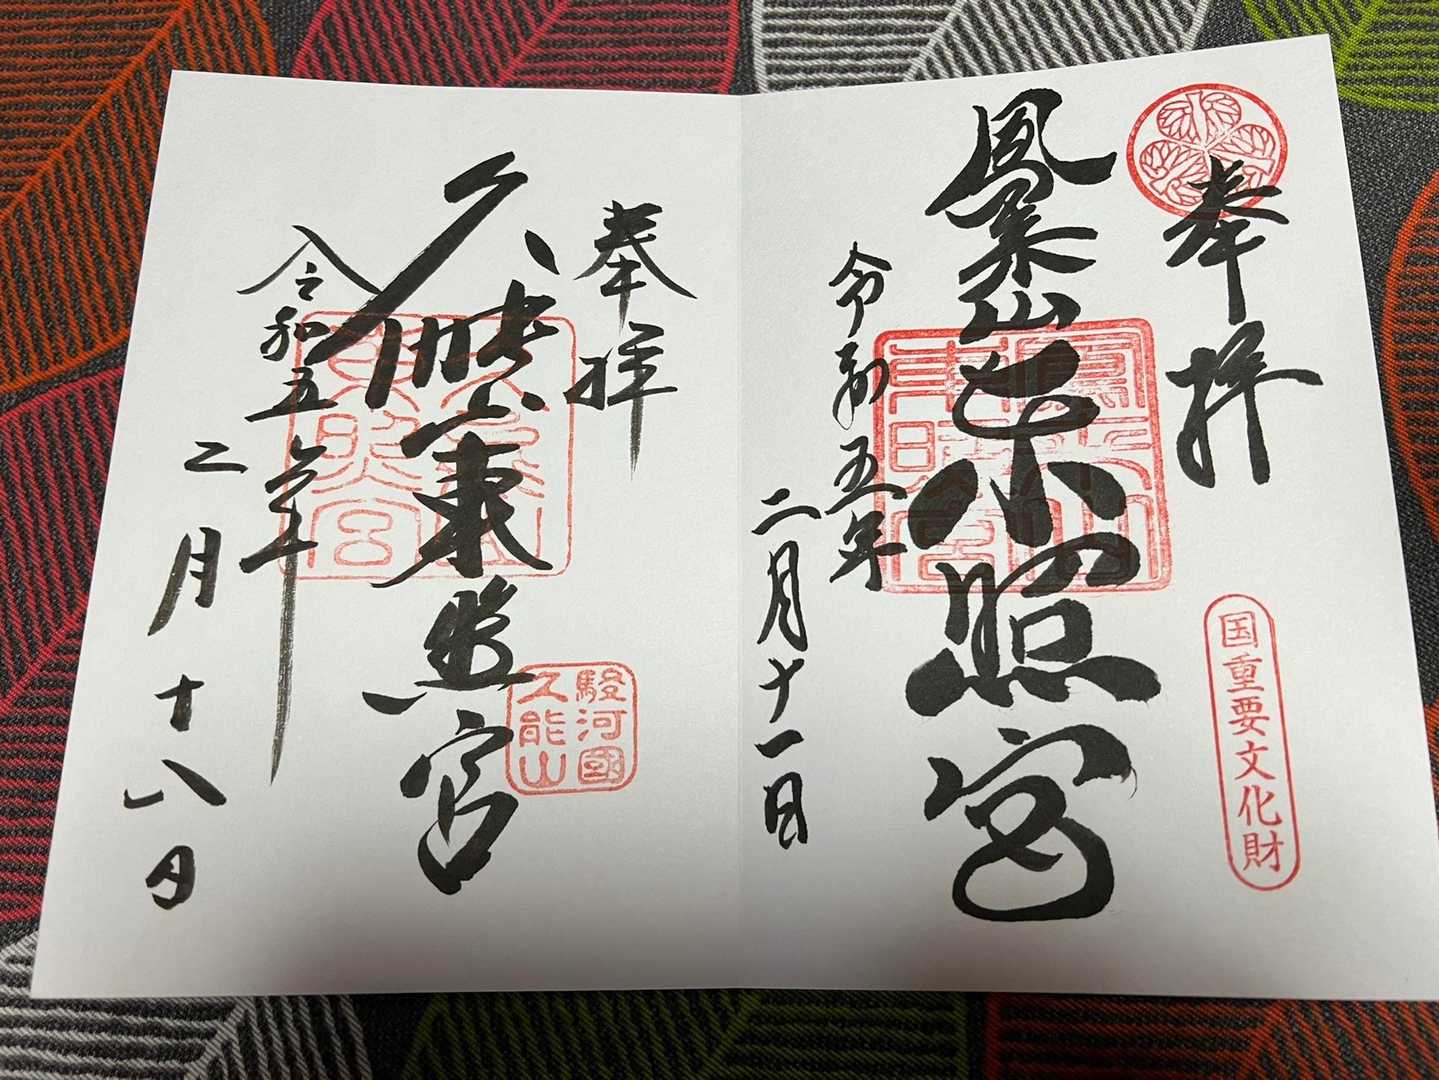 奉拝
鳳来山東照宮
令和五年
二月十一日
国重要文化財
奉拝
久能山東照宮
駿河國
久能山
令和五年
二月十八日